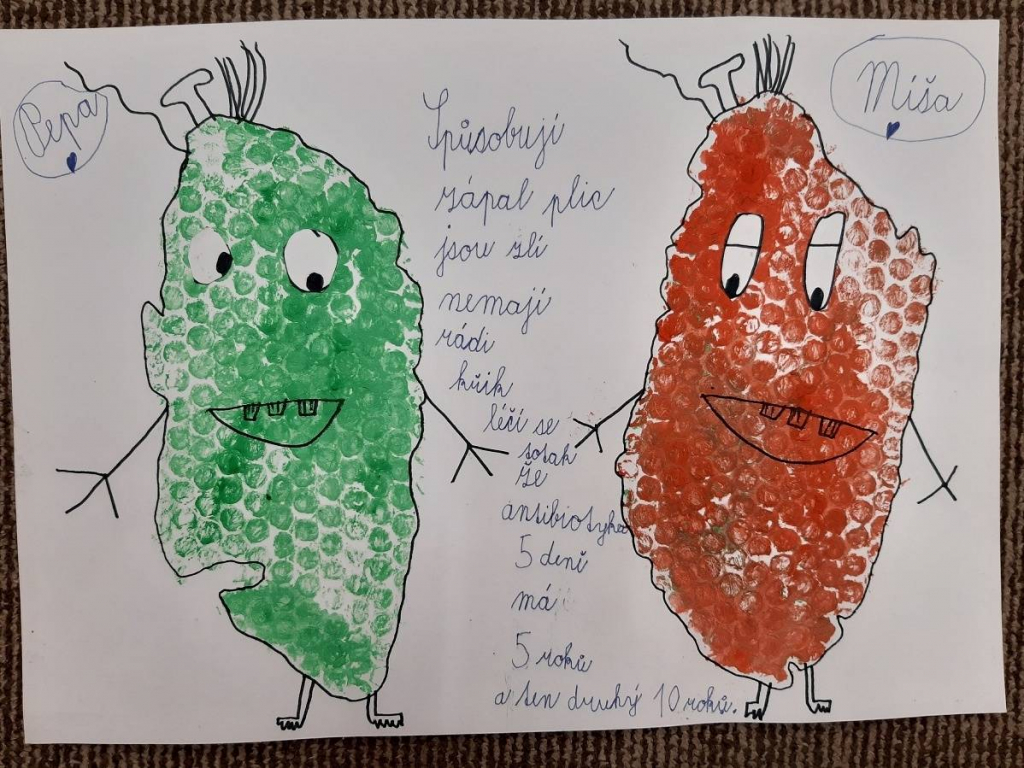 Pepa
Míša
Spůsobují
zápal plic
jsou zlí
nemají
rádi
kůik
léčí se
totak
že
antibiotyka
5 denů
má
5 roků
a ten druhý 10 roků.